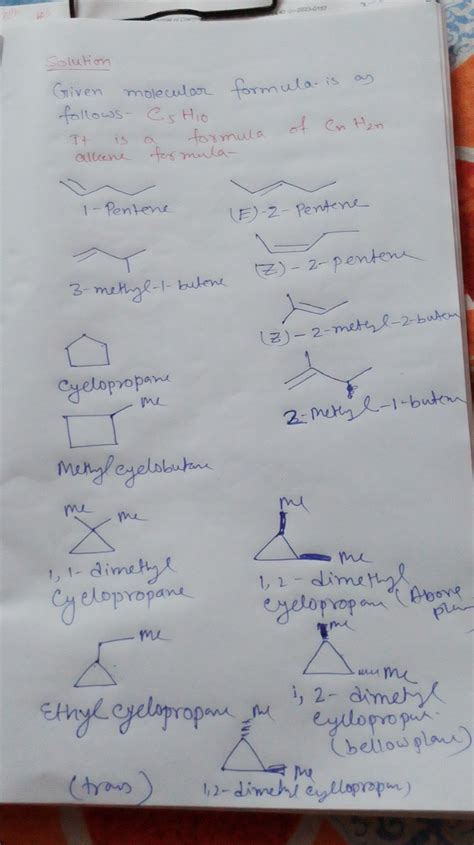 Solution
Given molecular formula is as
follows- C5H10
It is a formula of CnH2n
alkene formula-
1-Pentene
(E)-2-Pentene
3-methyl-1-butene
(Z)-2-pentene
(Z)-2-metyl-2-buten
Cyclopropane
Me
2-Metyl-1-buten
Methylcyclobutane
Me
Me
Me
Me
1,1-dimethyl
Cyclopropane
1,2-dimethyl
cyclopropan (Above
plan
Me
Me
Me
Ethyl cyclopropane
1,2-dimetyl
cyclopropan
(bellow plane)
Me
Me
(trans)
1,2-dimethyl cyclopropan)